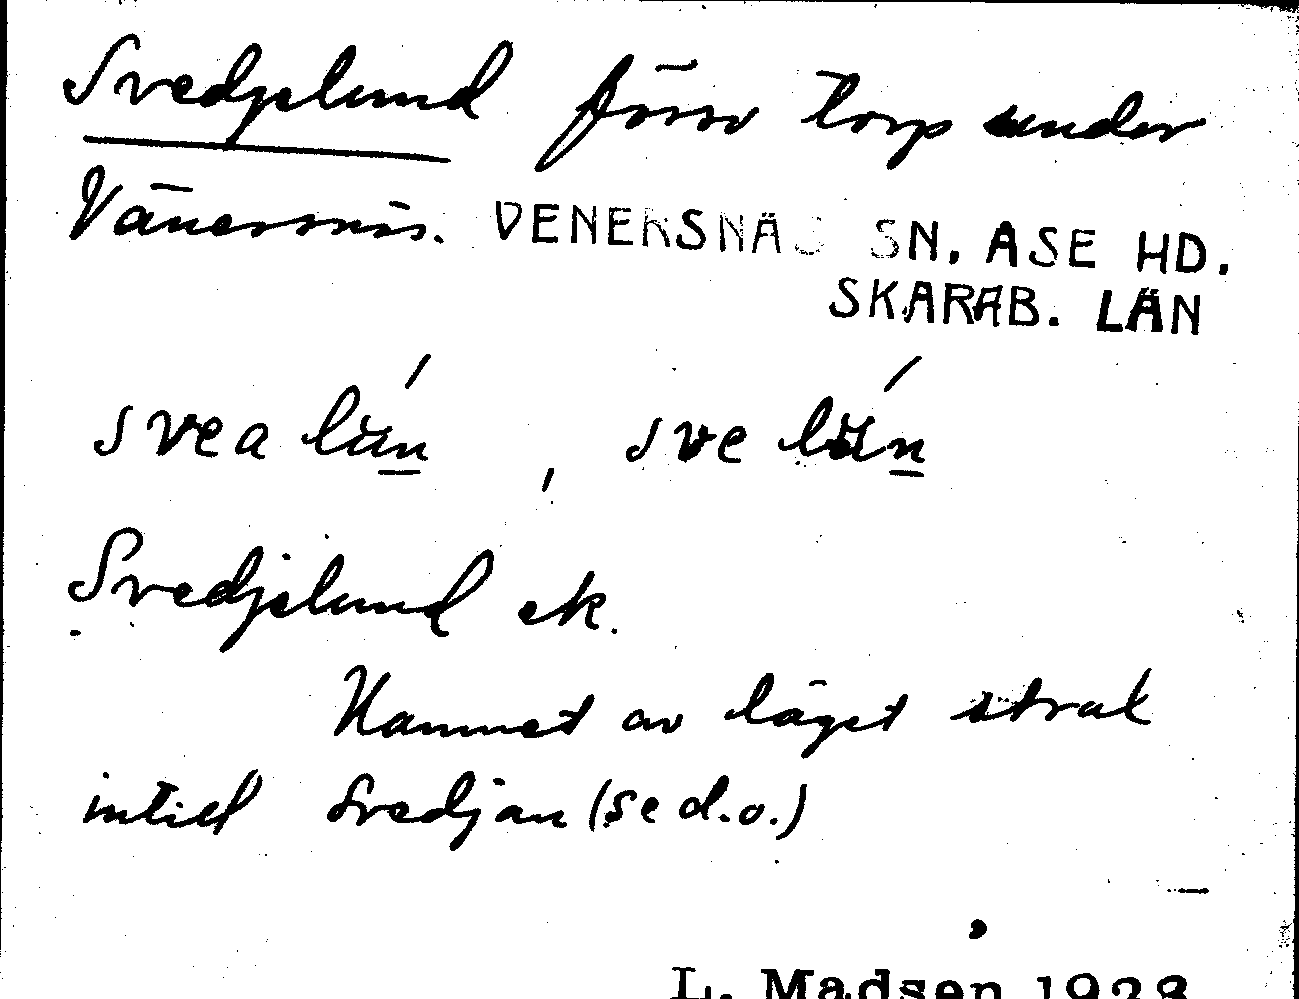 Svedjelund försv torp under
Vänersnäs. VENERSNÄS SN. ASE HD.
SKARAB. LÄN
svea lǘn , sve lǘn
Svedjelund ek.
Namnet av läget strak
intill Svedjan (se d.o.)
L. Madsen 1928